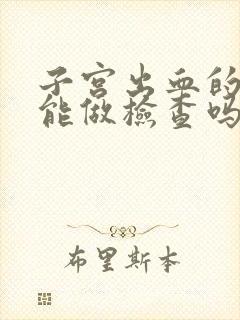 子宫出血的
能做检查吗
布里斯本